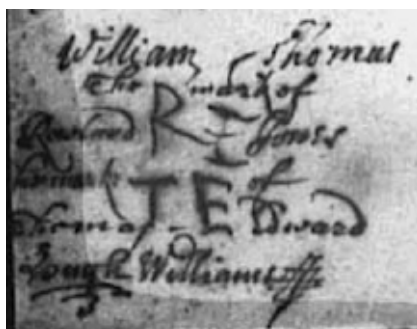 William Thomas
The mark of
Rowland R I Jones
the mark T E of
Thomas - Edward
Williams